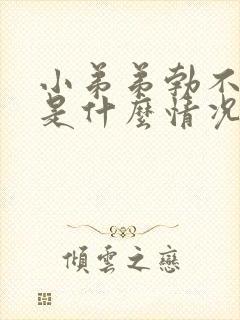 小弟弟勃不
是什麼情况
傾雲之戀